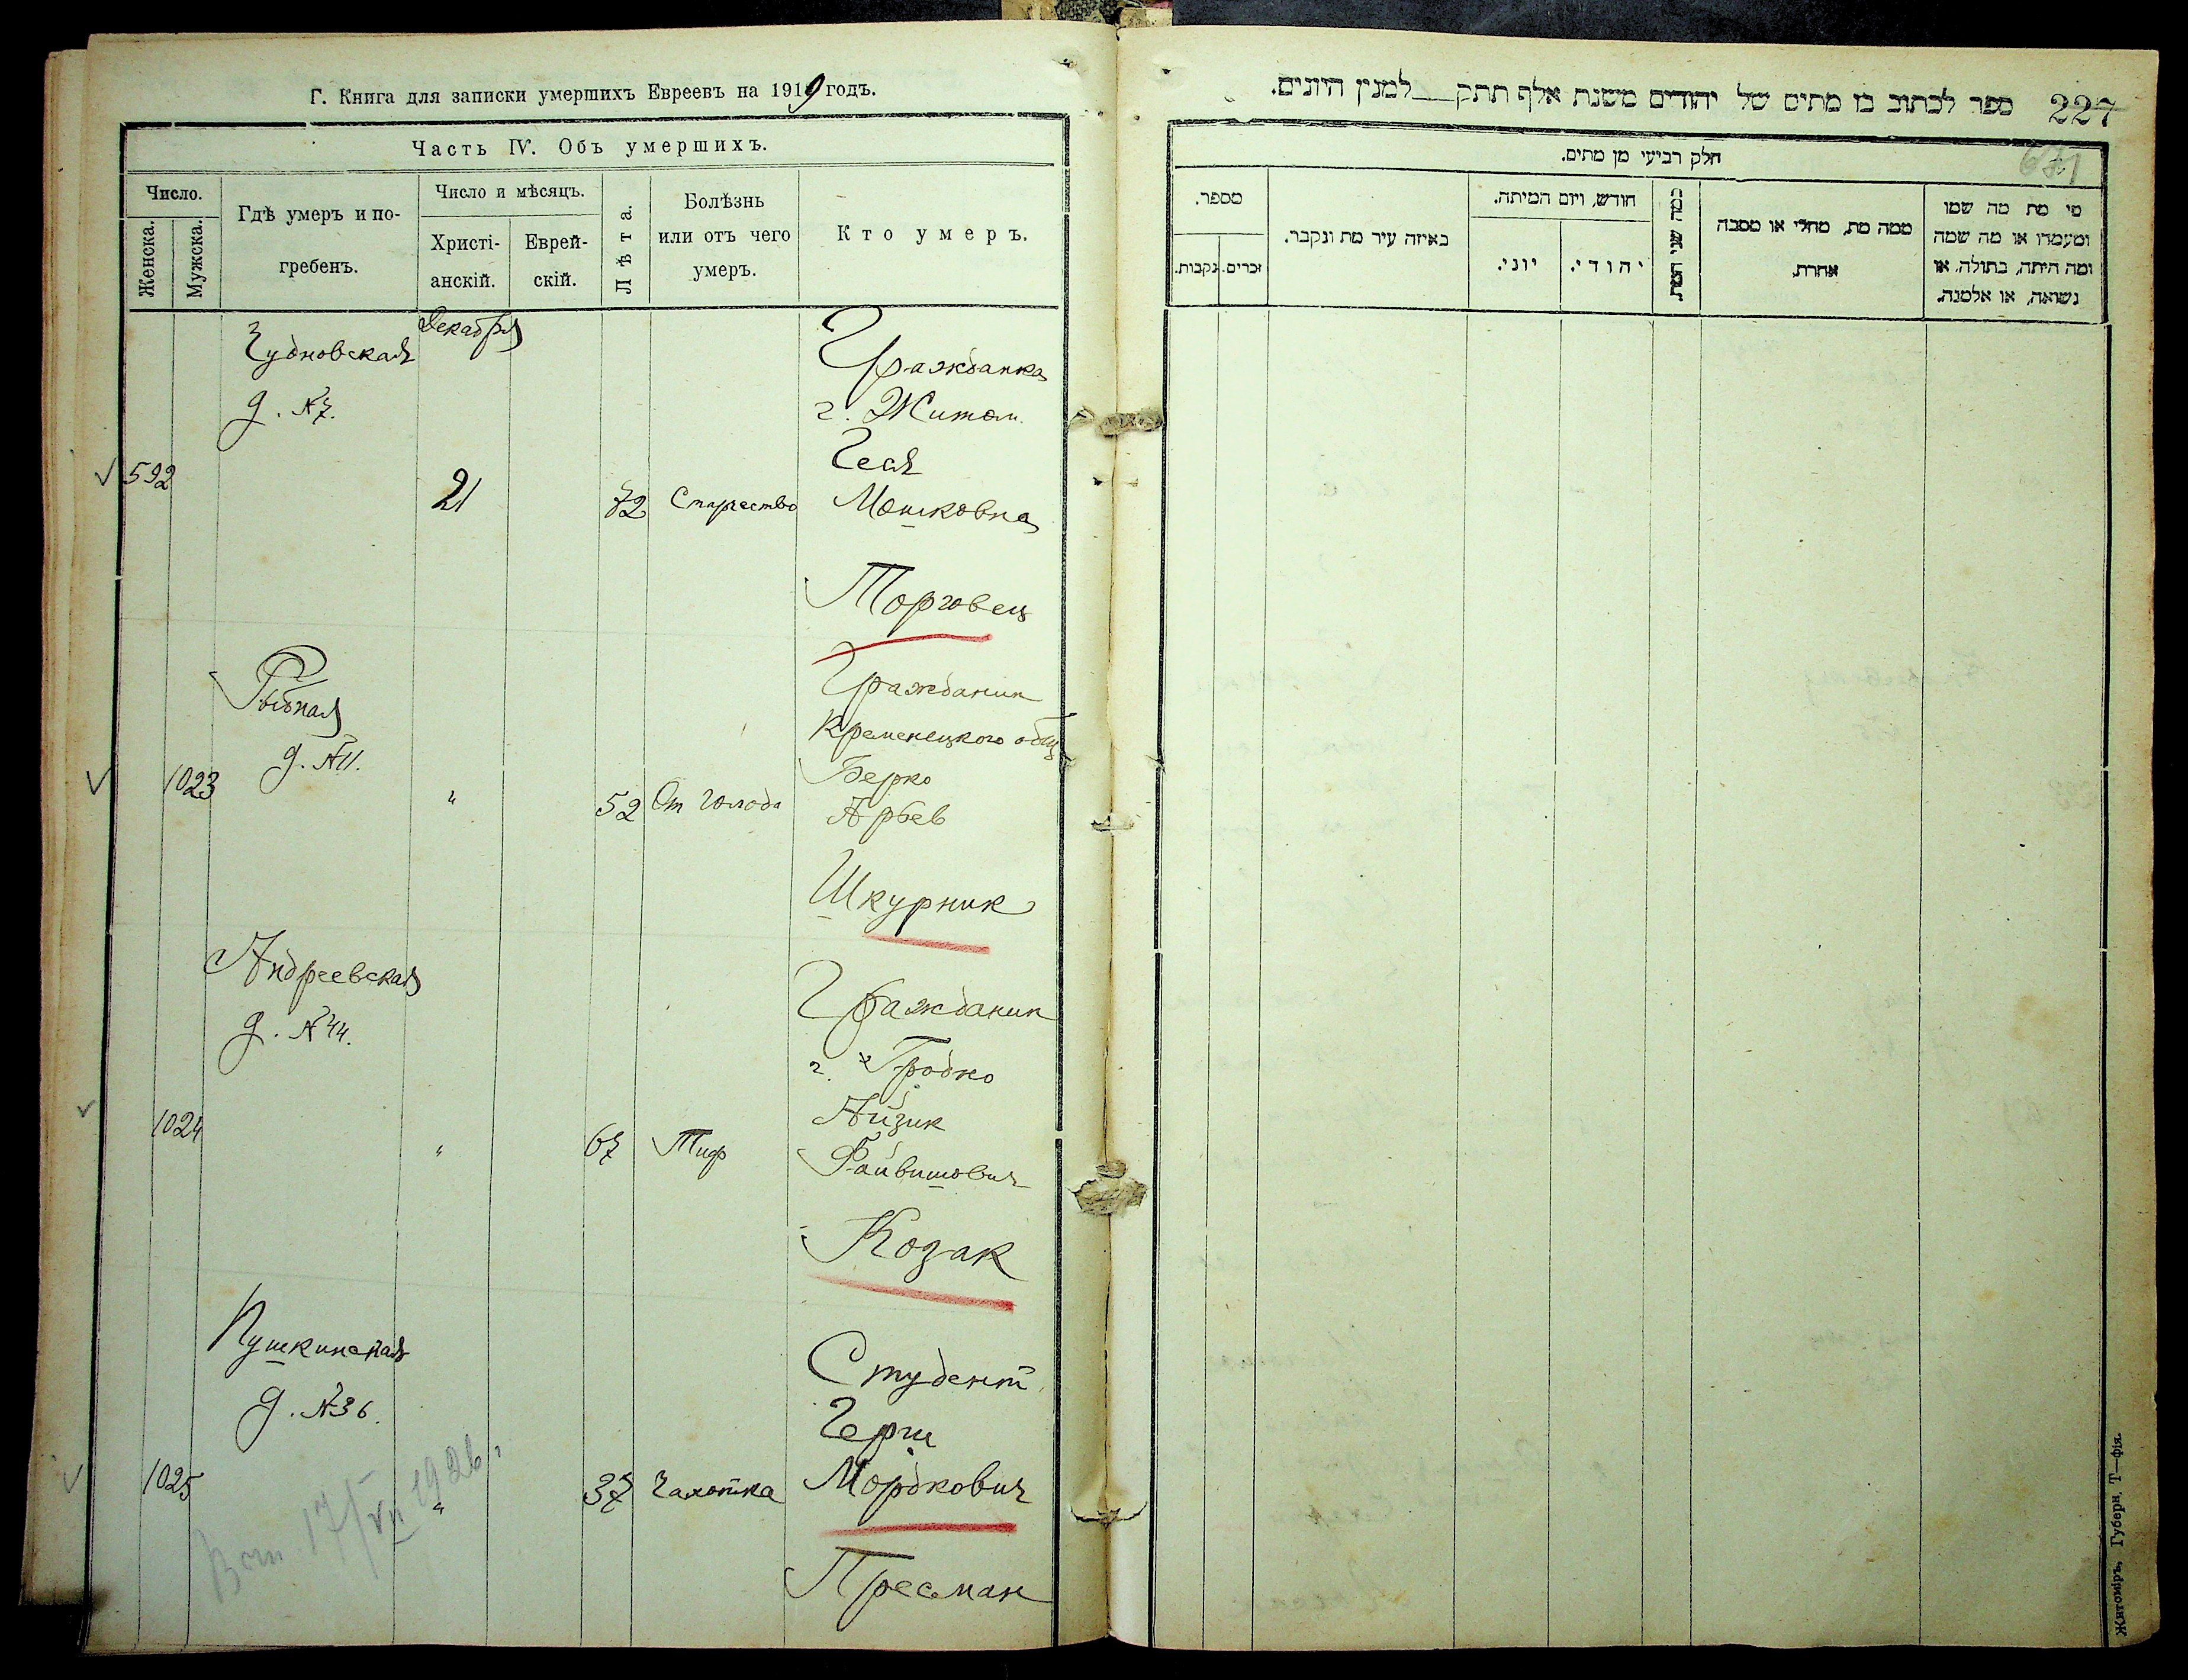 Г. Книга для записки умершихъ Евреевъ на 1919 годъ.
Часть IV. Объ умершихъ.
Число.
Женска.
Мужска.
Гдѣ умеръ и по-
гребенъ.
Число и мѣсяцъ.
Христі-
анскій.
Еврей-
скій.
Лѣта.
Болѣзнь
или отъ чего
умеръ.
Кто умеръ.
Декабря
Чудновская
д. №7.
592
21
72
Старество
Гражданка
г. Житом.
Геся
Мошковна
Торговец
Рыбная
д. №11.
1023
"
52
От голода
Гражданин
Кременецкого общ
Берко
Арьев
Шкурник
Андреевская
д. №44.
1024
"
67
Тиф
Гражданин
г. Гродно
Айзик
Файвишович
Козак
Пушкинская
д. №36.
1025
"
37
Чахотка
Студент
Герш
Мордкович
Пресман
17/VII 1926 г
ספר לכתוב בו מתים של יהודים משנת אלף תתק___למנין היונים.
227
671
חלק רביעי מן מתים.
מספר.
זכרים.
נקבות.
באיזה עיר מת ונקבר.
חודש, ויום המיתה.
יוני.
יהודי.
כמה שני המת
ממה מת, מחלי או מסבה
אחרת.
מי מת מה שמו
ומעמדו או מה שמה
ומה היתה, בתולה, או
נשואה, או אלמנה.
Житоміръ, Губерн. Т—фія.